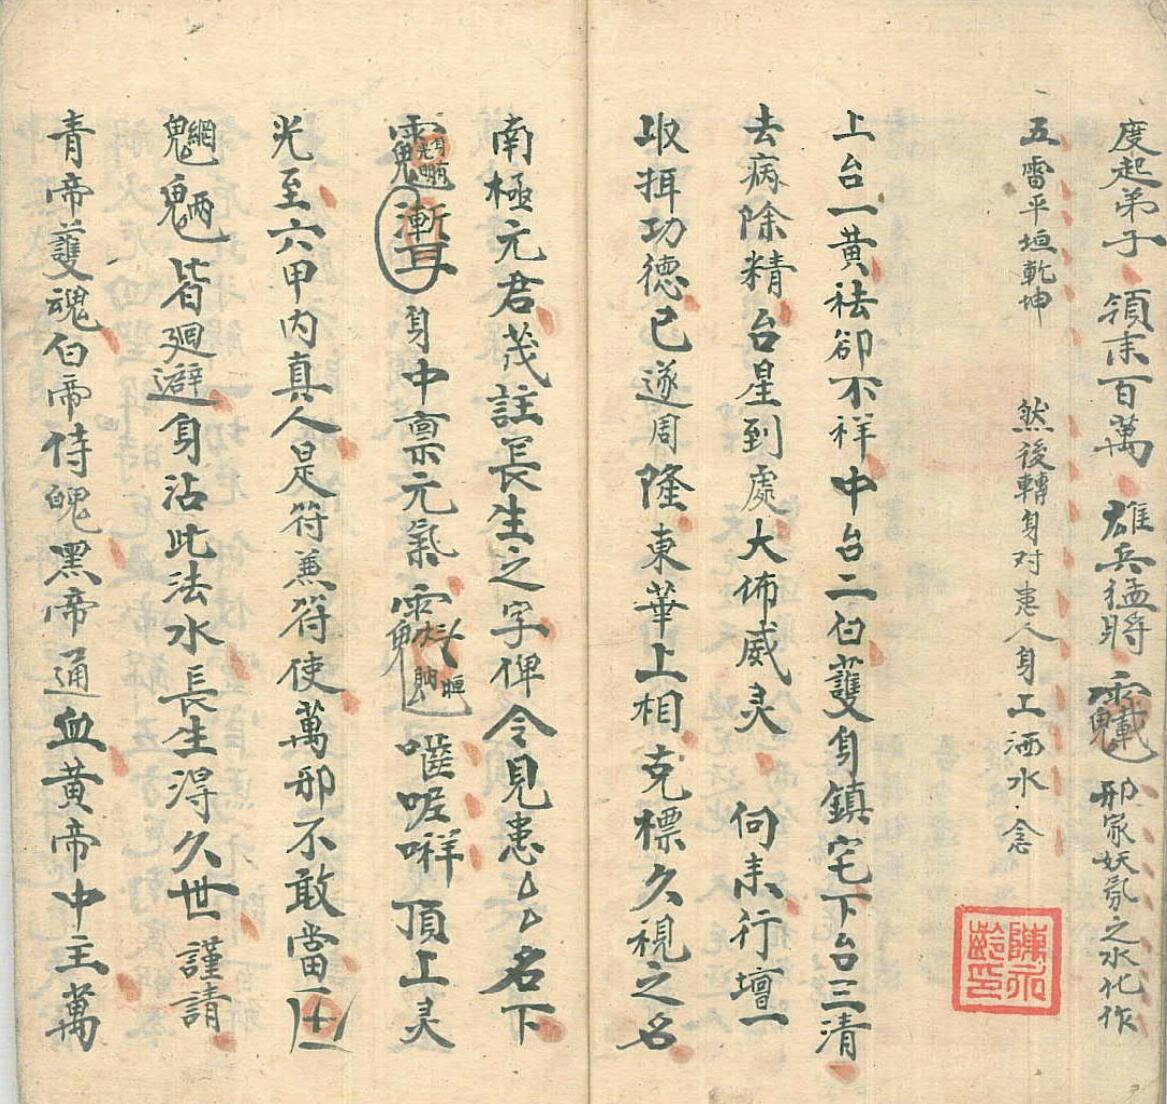 度起弟子領來百萬雄兵猛將邪家妖氛之水化作
五雷平垣乾坤 然後轉身对患人身工洒水念
上台一黃祛卻不祥中台二白護身鎮宅下台三清
去病除精台星到處大佈威灵 向來行壇一
取 功德已遂周隆東華上相克標久視之名
南極元君茂註長生之字俾令見患厶厶名下
漸耳身中禀元氣 頂上灵
光至六甲内真人是符兼符使萬邪不敢當
皆廻避身沾此法水長生淂久世謹請
青帝護魂白帝侍魄黑帝通血黃帝中主萬
陳永齡印